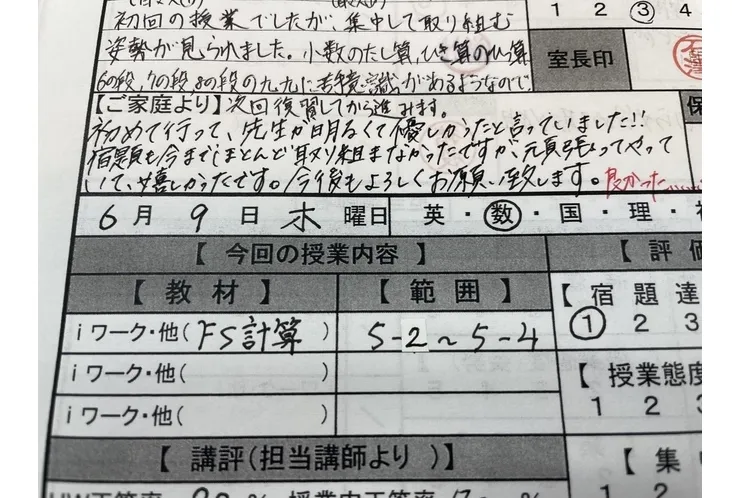 初回の授業でしたが、集中して取り組む
1 2 ③ 4
姿勢が見られました。小数のたし算、ひき算のひっ算
室長印
6の段、7の段、8の段の九九に苦手意識があるようなので
【ご家庭より】次回復習してから進みます。
初めて行って、先生が明るくて優しかったと言っていました!!
宿題も今までほとんど取り組まなかったですが、頑張ってやって
いて、嬉しかったです。今後もよろしくお願い致します。良かった
6月9日木曜日 英・数・国・理・
【今回の授業内容】
【評価
【教材】
【範囲】
【宿題達
iワーク・他(FS計算)
5-2~5-4
① 2 3
iワーク・他( )
【授業態度
iワーク・他( )
1 2 3
【講評(担当講師より)】
【集中
1 2